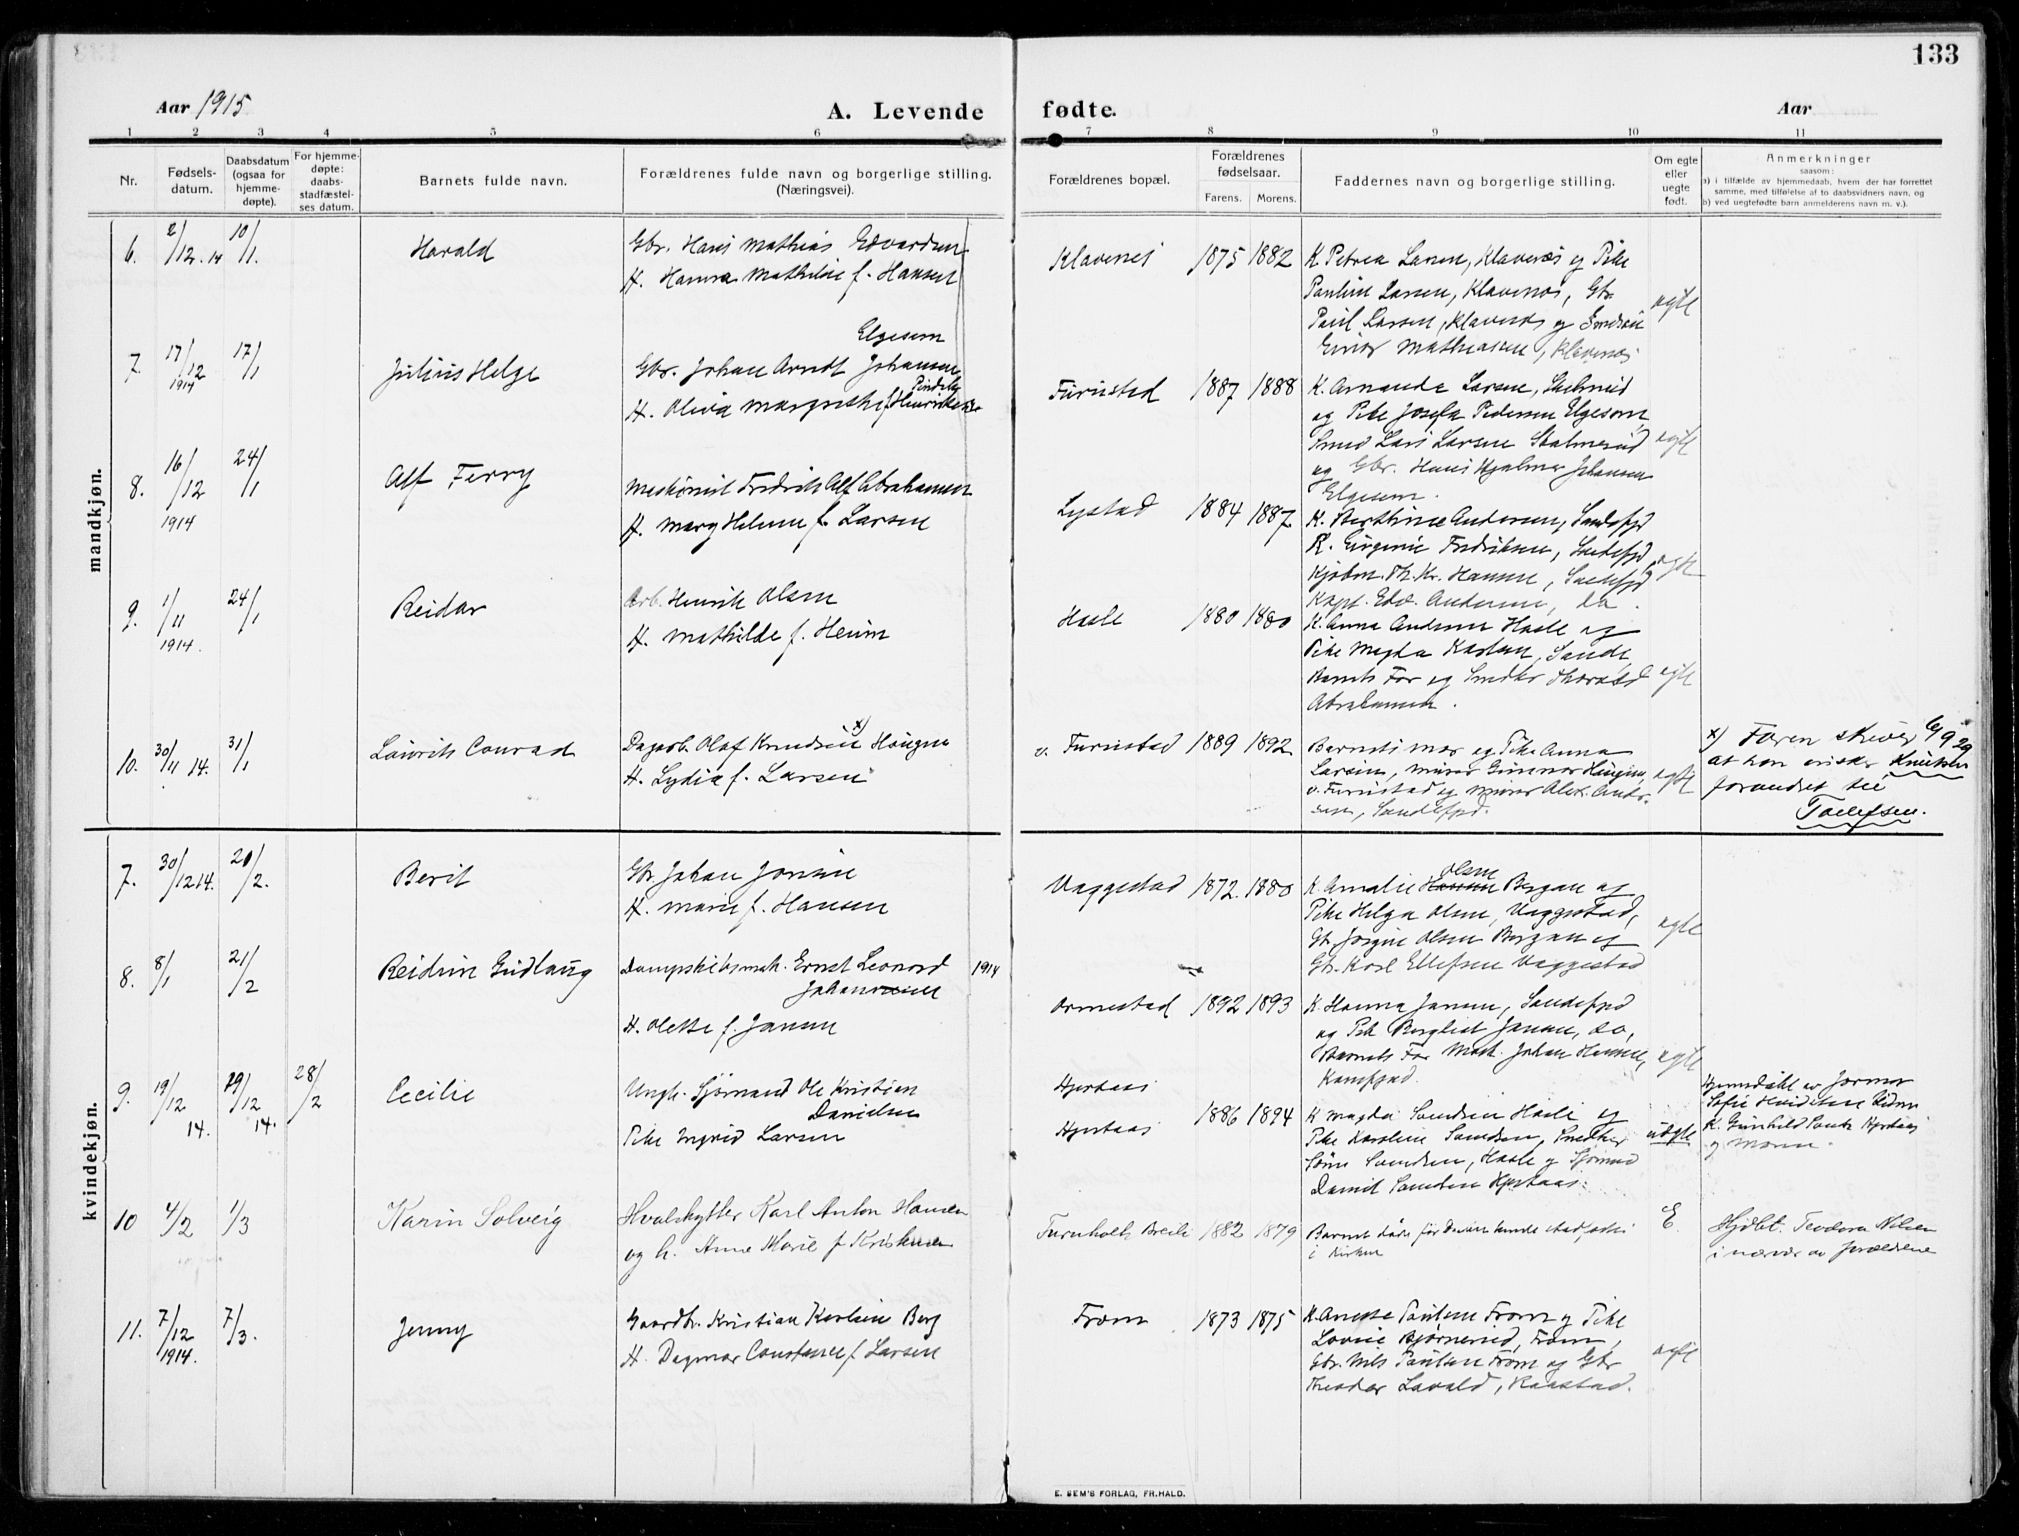 133
Aar 1915
A. Levende fødte.
Aar
1 2 3 4 5 6 7 8 9 10 11
Nr.
Fødsels-
datum.
Daabsdatum
(ogsaa for
hjemme-
døpte).
For hjemme-
døpte:
daabs-
stadfæstel-
ses datum.
Barnets fulde navn.
Forældrenes fulde navn og borgerlige stilling.
(Næringsvei).
Forældrenes bopæl.
Forældrenes
fødselsaar.
Farens. Morens.
Faddernes navn og borgerlige stilling.
Om egte
eller
uegte
født.
Anmerkninger
saasom:
a) i tilfælde av hjemmedaab, hvem der har forrettet
samme, med tilføielse af to daabsvidners navn, og
b) ved uegtefødte barn anmelderens navn m. v.).
mandkjøn.
6. 2/12.14 10/1. Harald
Gbr. Hans Mathias Edvardsen
H. Hanna Mathilde f. Hansen
Klavenes 1875 1882
K. Petrea Larsen, Klavenes og Pike
Pauline Larsen, Klavenes, Gbr.
Paul Larsen, Klavenes og
Einar Mathiasen, Klavenes
egte
7. 17/12 1914 17/1 Julius Helge
Elgesem
Gbr. Johan Arndt Johansen
H. Oliva Margrethe f. Henriksen
Furustad 1887 1888
K. Amanda Larsen,
og Pike Josefa Pedersen Elgesem,
Smed Lars Larsen
og Gbr. Hans Hjalmar Johansen
Elgesem.
egte
8. 16/12 1914 24/1 Alf Ferry
Maskinist Fredrik Alf Abrahamsen
H. Mary Helene f. Larsen
Lystad 1884 1887
K. Berthine Andersen, Sandefjd
K. Eugenie Fredriksen, Sandefjd,
Kjøbm. Th. Kr. Hansen, Sandefjd
Kapt. Edv. Andersen, do.
egte
9. 1/11 1914. 24/1 Reidar
Arb. Henrik Olsen
H. Mathilde f. Heum
Hasle 1880 1880
K. Anna Andersen Hasle og
Pike Magda Karlsen, Sande,
Barnets Far og Snedker Thorvald
Abrahamsen.
egte
10. 30/11 14. 31/1 Laurits Conrad
Dagarb. Olaf Knudsen x) Haugen
H. Lydia f. Larsen
v. Furustad 1889 1892
Barnets mor og Pike Anna
Larsen, murer Gunnar Haugen,
v. Furustad og murer Alex. Ander-
sen, Sandefjd.
egte
x) Faren skriver 6/9 29
at han ønsker Knutsen
forandret til
Tollefsen.
kvindekjøn.
7. 30/12 14. 20/2. Berit
Gbr. Johan Jonsen
H. Marie f. Hansen
Vaggestad 1872. 1880
Olsen
K. Amalie Hansen Bergan og
Pike Helga Olsen, Vaggestad,
Gbr. Jørgen Olsen Bergan og
Gbr. Karl Ellefsen Vaggestad
egte
8. 8/1 21/2 Reidun Gudlaug
Dampskibsmask. Ernst Leonard 1914
Johannesen
H. Olette f. Jansen
Ormestad 1892 1893
K. Hanna Jansen, Sandefjord
og Pike Bergliot Jansen, do,
Barnets Far Mask. Johan Hansen,
egte
9. 19/12 14. 29/12 14. 28/2 Cecilie
Ungk. Sjømand Ole Kristian
Danielsen
Pike Ingrid Larsen
Hjertaas
Hjertaas 1886 1894
K Magda Svendsen Hasle og
Pike Karoline Svendsen, Snedker
Svendsen, Hasle og Sjømand
Daniel Svendsen Hjertaas.
uegte
Hjemmedøbt av Jormor
Sofie
K. Gunhild Hjertaas
og Moren.
10 4/2 1/3 Karin Solveig
Hvalskytter Karl Anton Hansen
og h. Anne Marie f Kristiansen
Furuholt 1882 1879
Barnet døde før Daaben kunde stadfæstes
i kirken
E.
Hjdbt. Teodora Nilsen
i nærvær av forældrene
11. 7/12 1914. 7/3. Jenny
Gaardbr. Kristian Karlsen Berg
H. Dagmar Constance f. Larsen
Fram 1873 1875
K. Anette Paulsen Fram og Pike
Lovise Bjørnerud, Fram,
Gbr. Nils Paulsen Fram og Gbr
Theodor Lavold, Raastad.
egte
E. SEM'S FORLAG, FR.HALD.